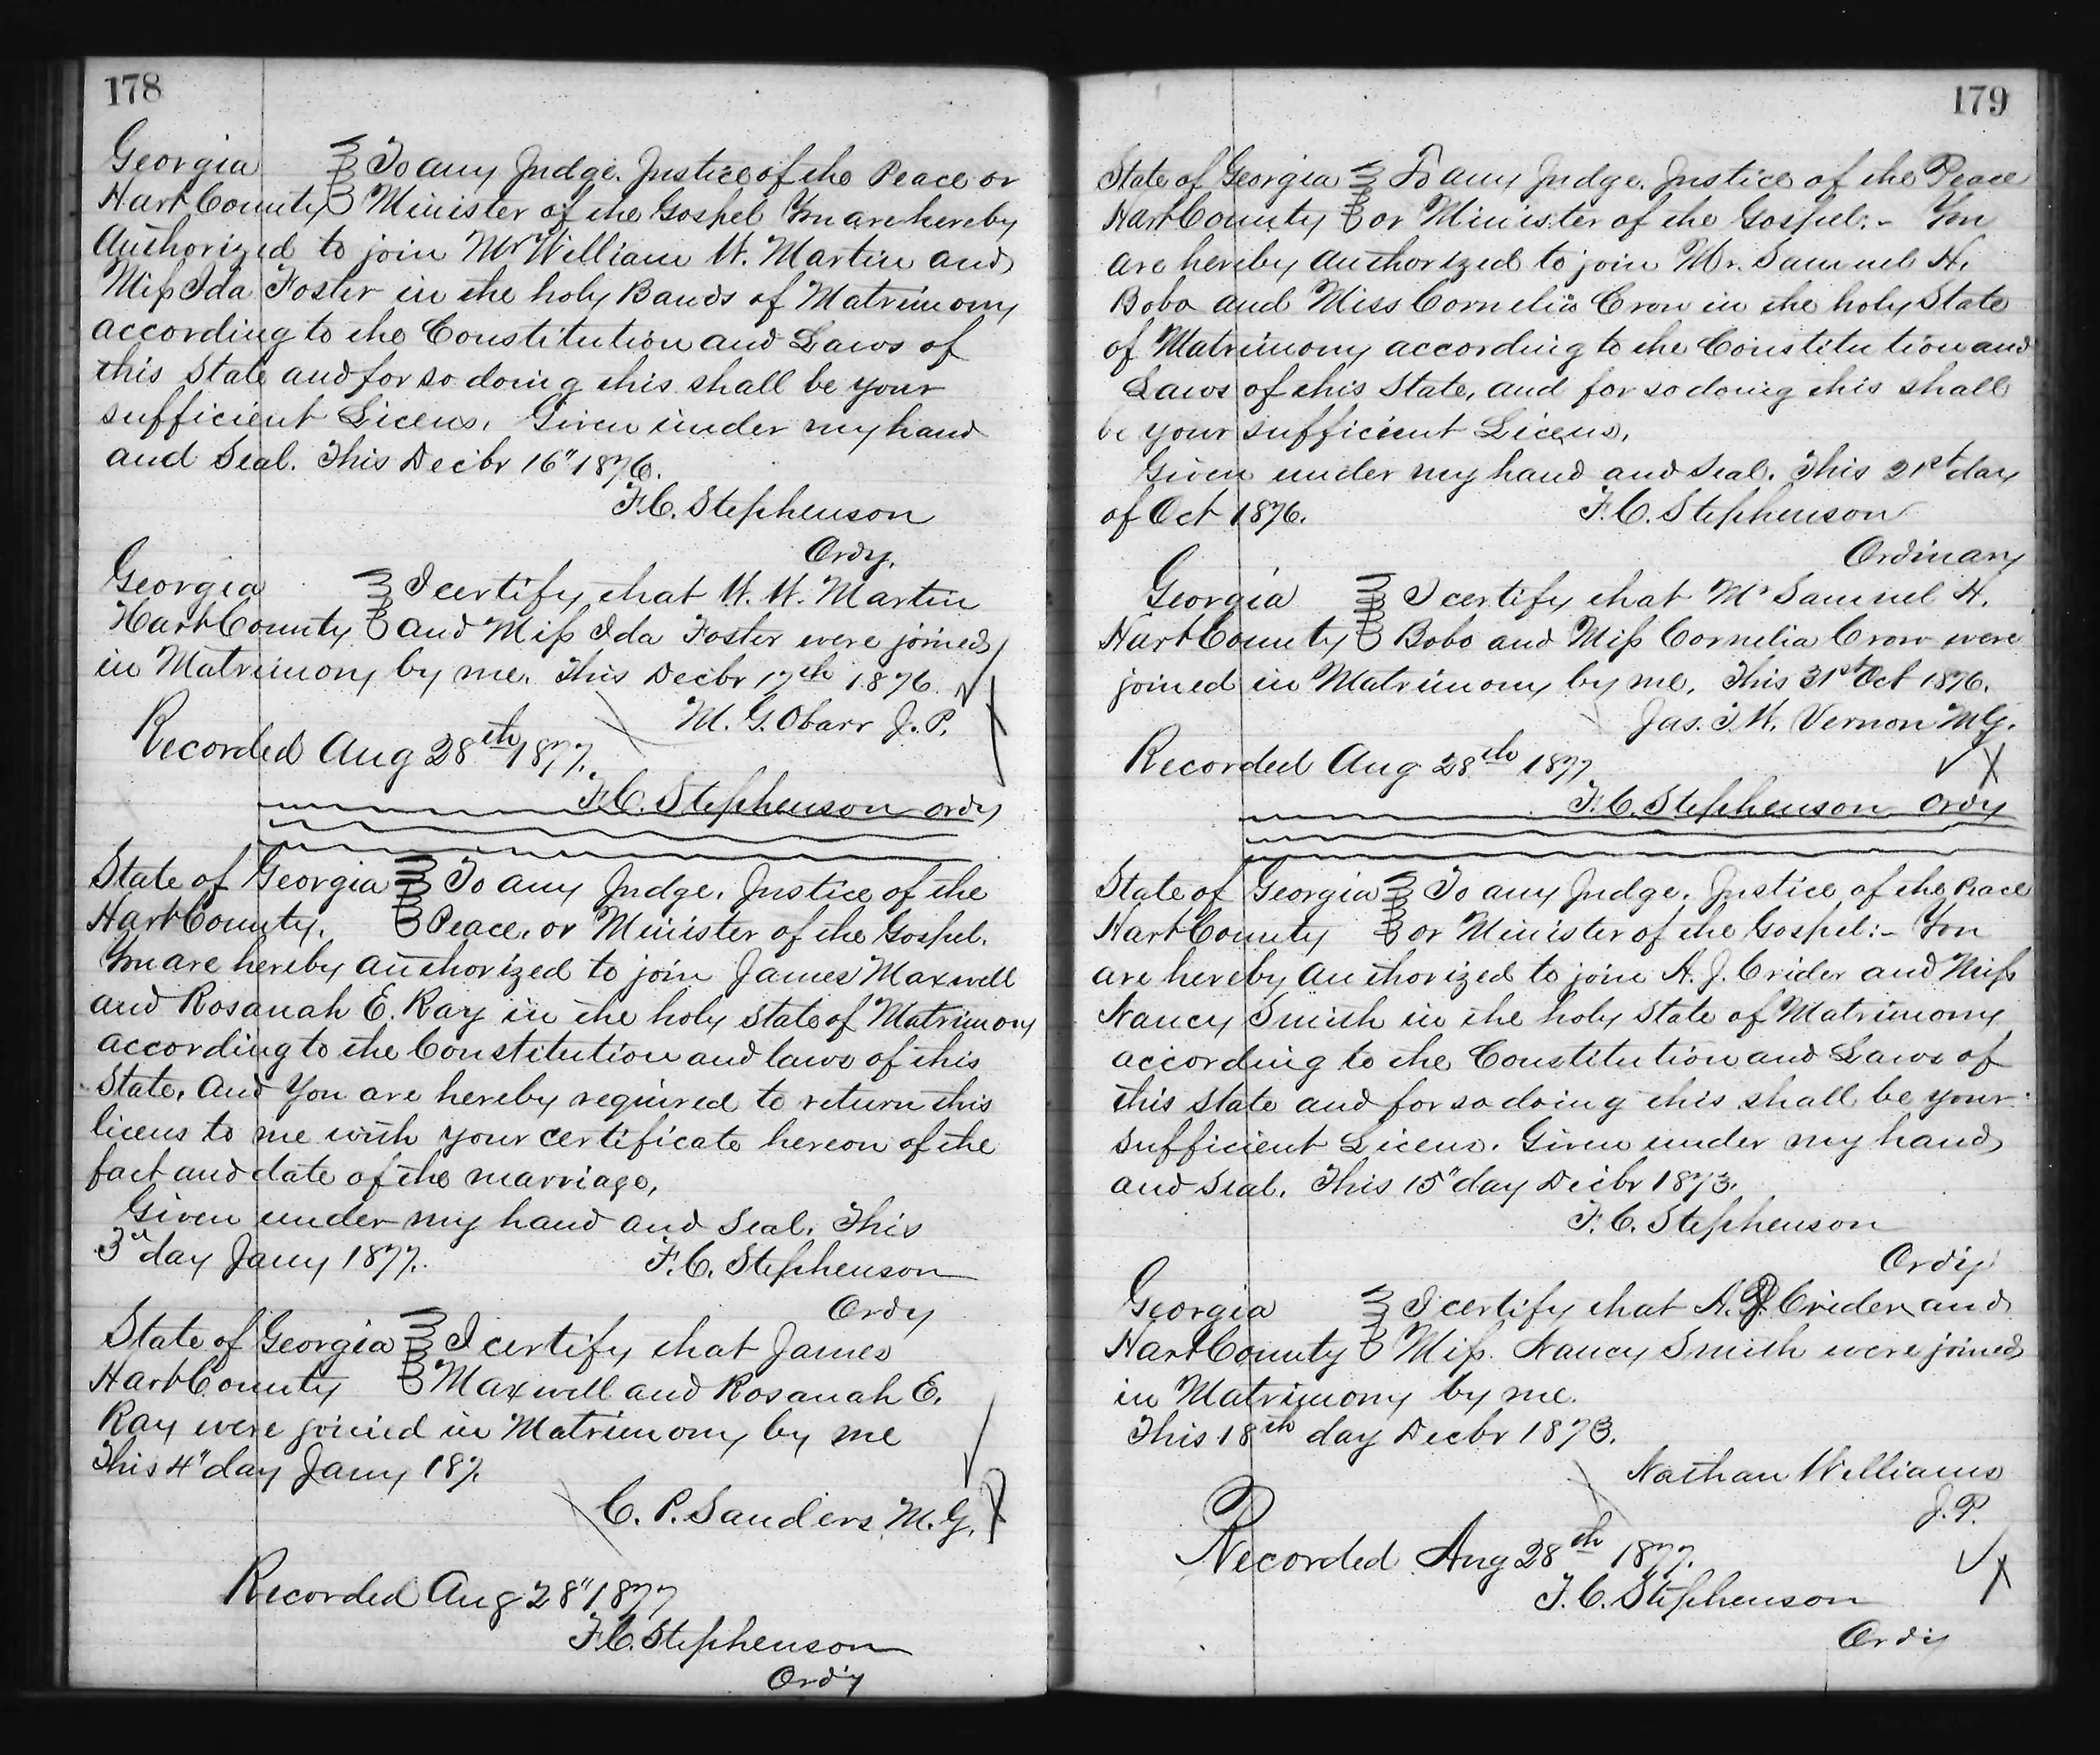 178
Georgia To any Judge. Justice of the Peace or
Hart County Minister of the Gospel You are hereby
Authorized to join Mr William W. Martin and
Miss Ida Foster in the holy Bands of Matrimony
according to the Constitution and Laws of
this State and for so doing this shall be your
sufficient Licens. Given under my hand
and Seal. This Decbr 16" 1876.
F. C. Stephenson
Ordy.
Georgia I certify that W. W. Martin
Hart County and Miss Ida Foster were joined
in Matrimony by me. This Decbr 17th 1876
M. G. Obarr J. P.
Recorded Aug 28th 1877.
F. C. Stephenson ordy
State of Georgia To any Judge. Justice of the
Hart County. Peace. or Minister of the Gospel.
You are hereby authorized to join James Maxwell
and Rosanah E. Ray in the holy state of Matrimony
according to the Constitution and laws of this
State. And You are hereby required to return this
licens to me with your certificate hereon of the
fact and date of the marriage.
Given under my hand and Seal. This
3rd day Jany 1877. F. C. Stephenson
Ordy
State of Georgia I certify that James
Hart County Maxwell and Rosanah E.
Ray were joined in Matrimony by me
This 4" day Jany 187.
C. P. Sanders M. G.
Recorded Aug 28" 1877
F. C. Stephenson
Ord'y
179
State of Georgia To any Judge. Justice of the Peace
Hart County or Minister of the Gospel:- You
are hereby authorized to join Mr. Samuel H.
Bobo and Miss Cornelia Crow in the holy State
of Matrimony according to the Constitution and
Laws of this State, and for so doing this shall
be your sufficient Licens.
Given under my hand and Seal. This 21st day
of Oct 1876. F. C. Stephenson
Ordinary
Georgia I certify that Mr Samuel H.
Hart County Bobo and Miss Cornelia Crow were
joined in Matrimony by me. This 31st Oct 1876.
Jas. T. W. Vernon M G.
Recorded Aug 28th 1877
F. C. Stephenson Ordy
State of Georgia To any Judge. Justice of the Peace
Hart County or Minister of the Gospel:- You
are hereby authorized to join A. J. Crider and Miss
Nancy Smith in the holy State of Matrimony
according to the Constitution and Laws of
this state and for so doing this shall be your
sufficient Licens. Given under my hand
and Seal. This 15" day Decbr 1873.
F. C. Stephenson
Ordy
Georgia I certify that A. J. Crider and
Hart County Miss. Nancy Smith were joined
in Matrimony by me.
This 18th day Decbr 1873.
Nathan Williams
J. P.
Recorded Aug 28th 1877.
F. C. Stephenson
Ordy